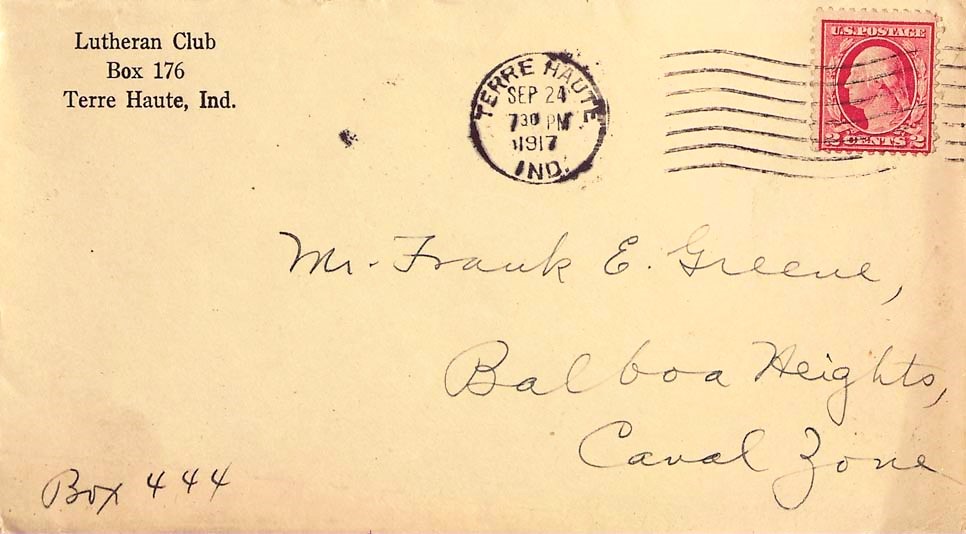 Lutheran Club
Box 176
Terre Haute, Ind.
TERRE HAUTE
SEP 24
7 30 PM
1917
IND.
U.S. POSTAGE
2 CENTS 2
Mr. Frank E. Greene,
Balboa Heights,
Canal Zone
Box 444